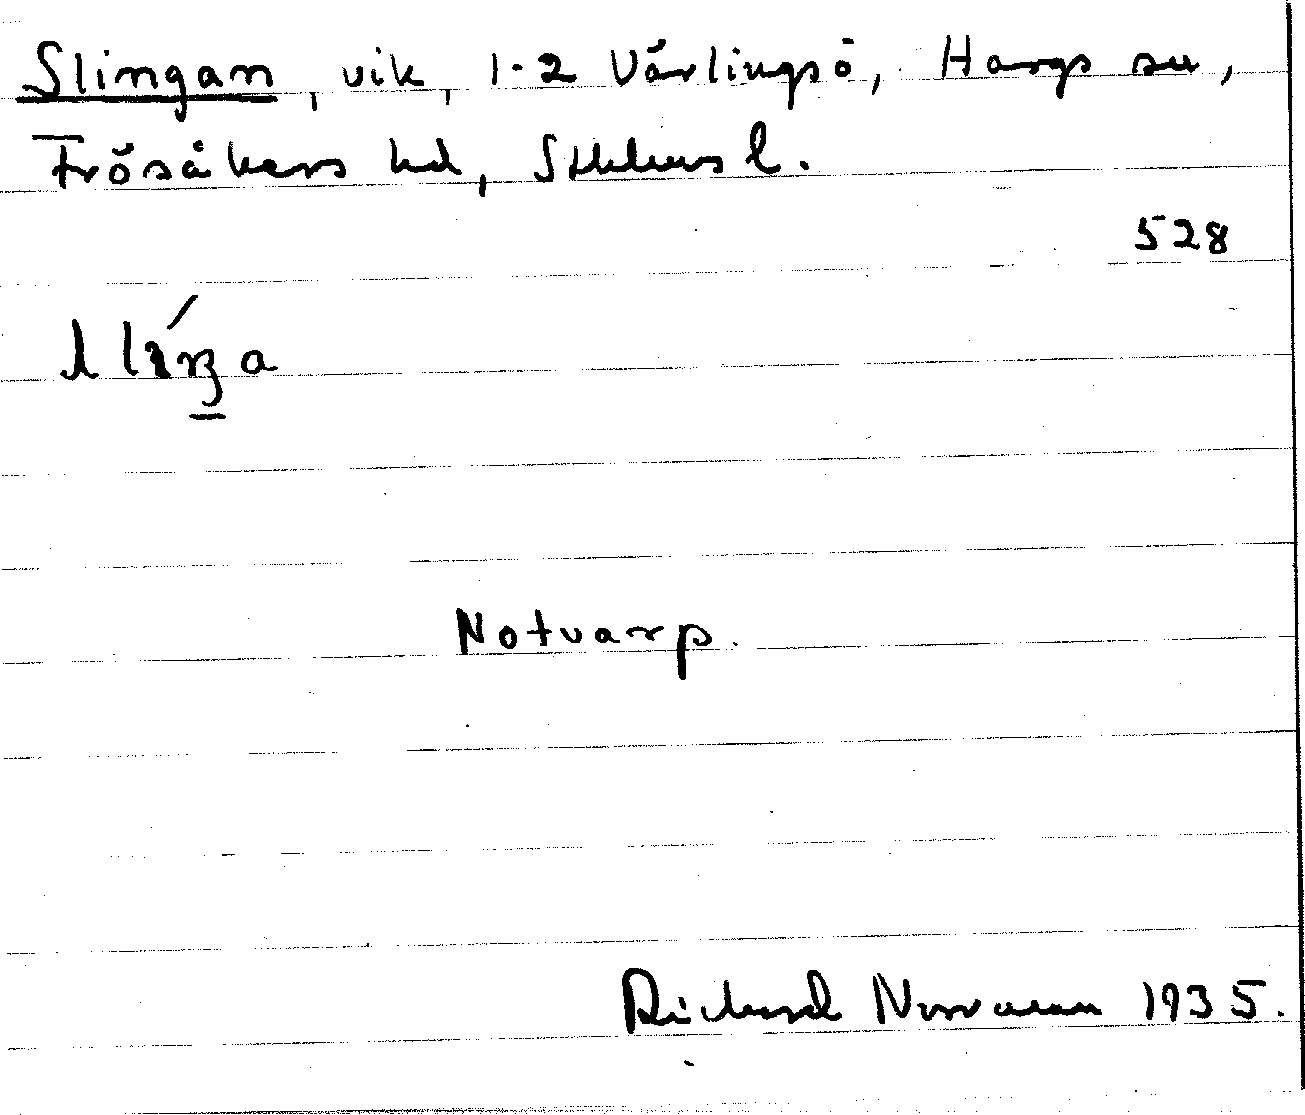 Slingan, vik, 1-2 Vårlingsö, Hargs sn,
Frösåkers hd, Sthlms l.
528
Notvarp.
Richard Norrman 1935.